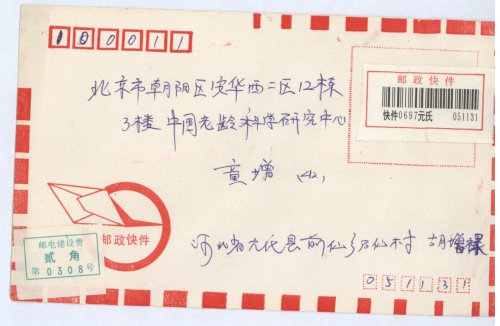 100011
北京市朝阳区安华西二区12栋
3楼 中国老龄科学研究中心
童增 (4)
邮政快件
快件0697元氏 051131
邮政快件
邮电建设费
贰角
第0308号
河北省元氏县前仙乡后仙村 胡增禄
051131